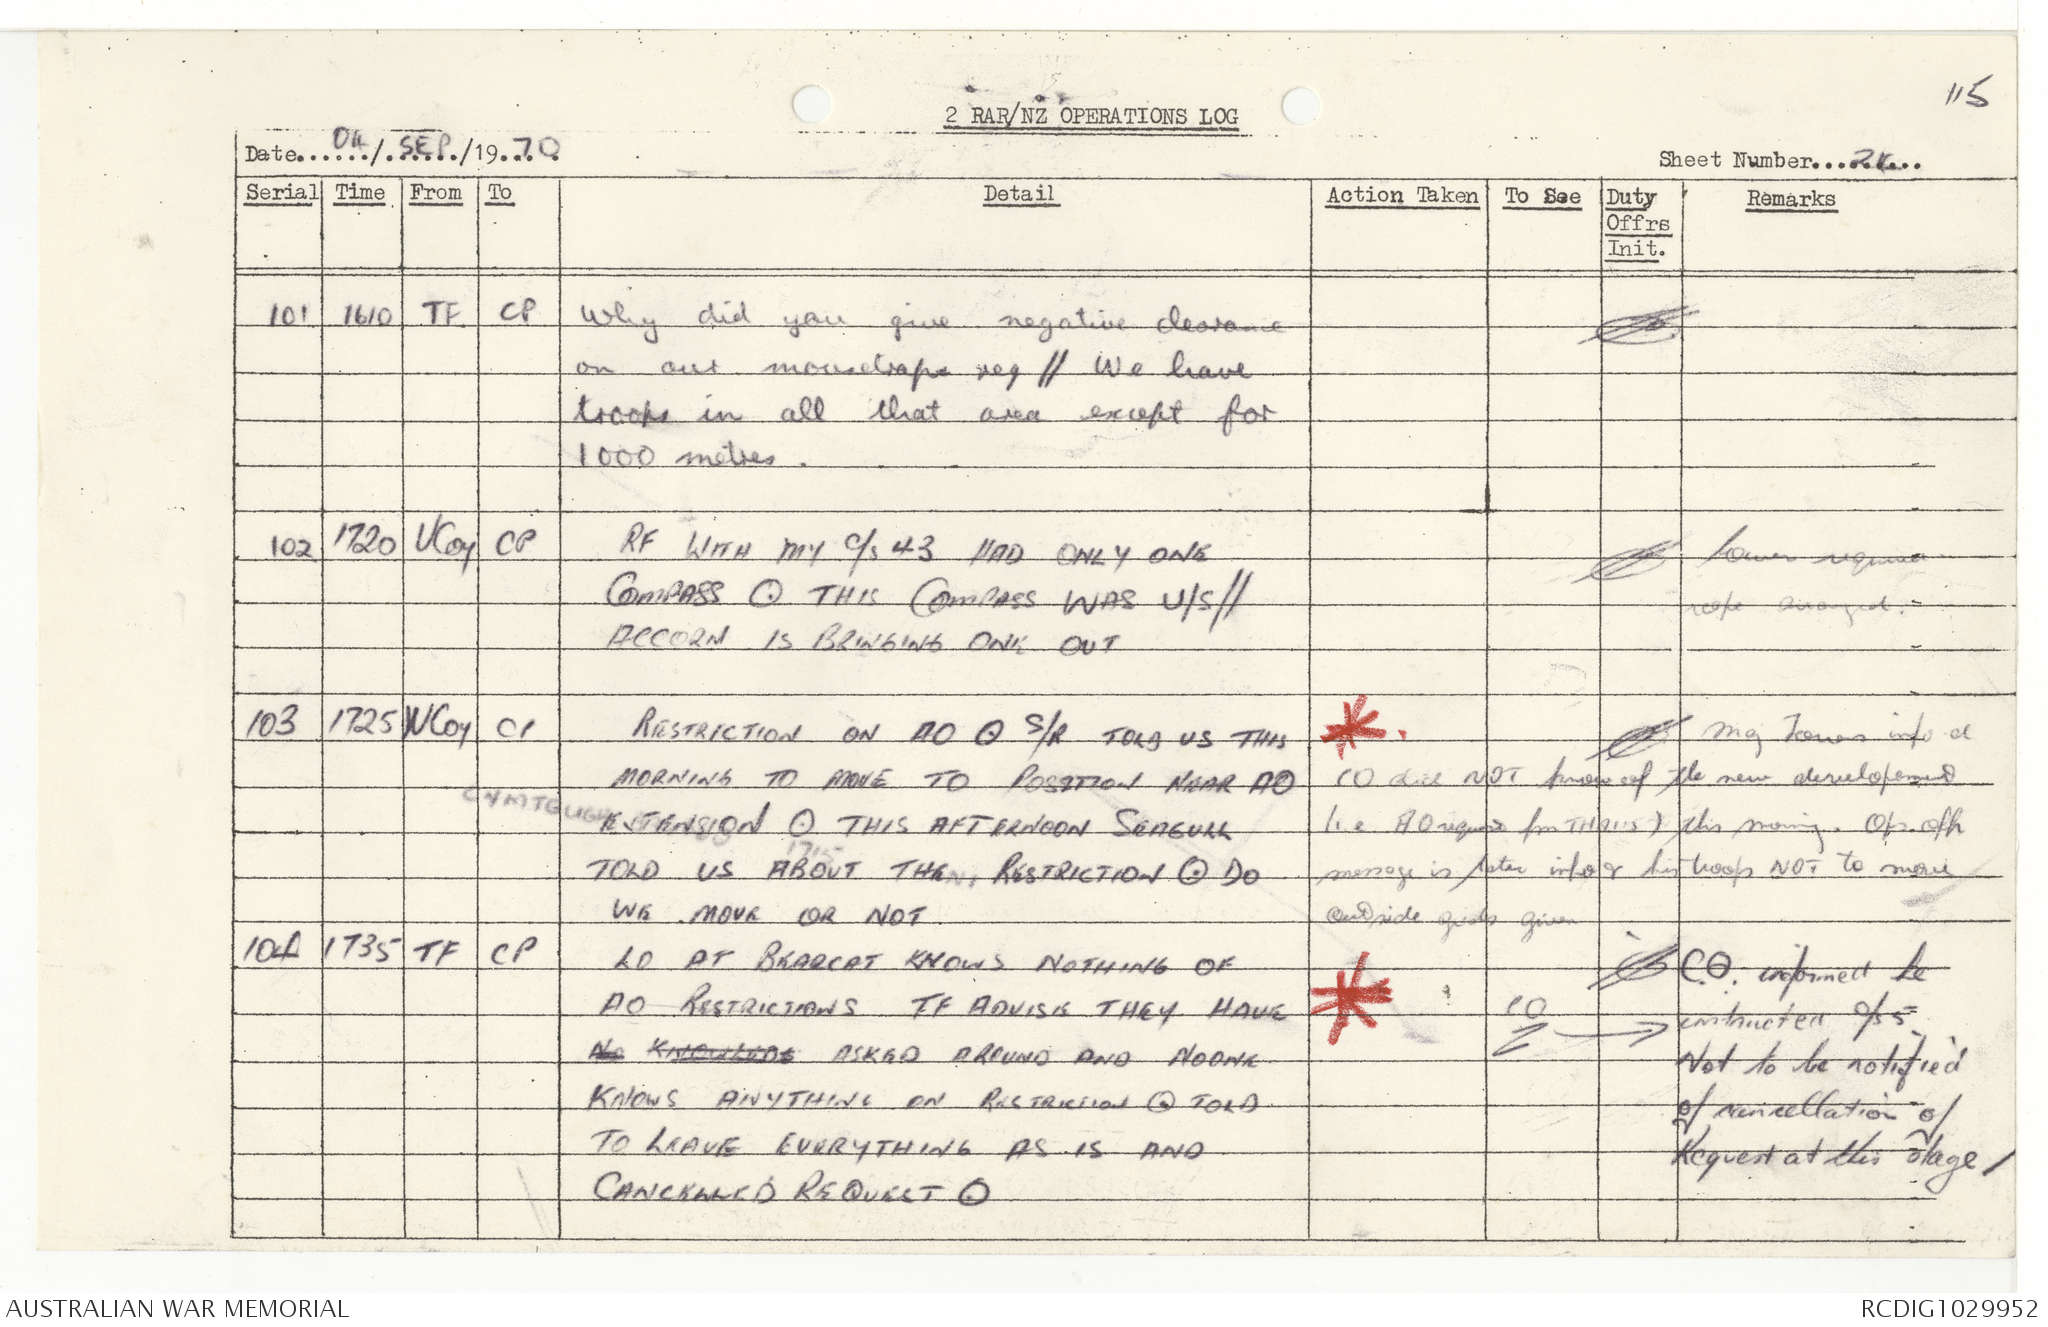 115
2 RAR/NZ OPERATIONS LOG
Date 04 / SEP /19 70
Sheet Number
Serial Time From To Detail Action Taken To See Duty Offrs Init. Remarks
101 1610 TF CP Why did you give negative clearance
on our mousetraps req // We have
troops in all that area except for
1000 metres.
102 1720 VCoy CP RF WITH MY C/S 43 HAD ONLY ONE
COMPASS ⊙ THIS COMPASS WAS U/S //
ACCORN IS BRINGING ONE OUT
arranged.
103 1725 WCoy CP RESTRICTION ON AO ⊙ S/R TOLD US THIS
MORNING TO MOVE TO POSITION NEAR AO
EXTENSION ⊙ THIS AFTERNOON SEAGULL
TOLD US ABOUT THE RESTRICTION ⊙ DO
WE MOVE OR NOT
Maj info d
CO did NOT know of the new developement
(i.e AO request fm THAIS) this morning. Ops offr
message is later his troops NOT to move
outside grids given
104 1735 TF CP LO AT BEARCAT KNOWS NOTHING OF
AO RESTRICTIONS TF ADVISE THEY HAVE
No KNOWLEDGE ASKED AROUND AND NOONE
KNOWS ANYTHING ON RESTRICTION ⊙ TOLD
TO LEAVE EVERYTHING AS IS AND
CANCELLED REQUEST ⊙
CO
C.O. informed he
instructed C/S 5
Not to be notified
of cancellation of
Request at this stage /
AUSTRALIAN WAR MEMORIAL
RCDIG1029952